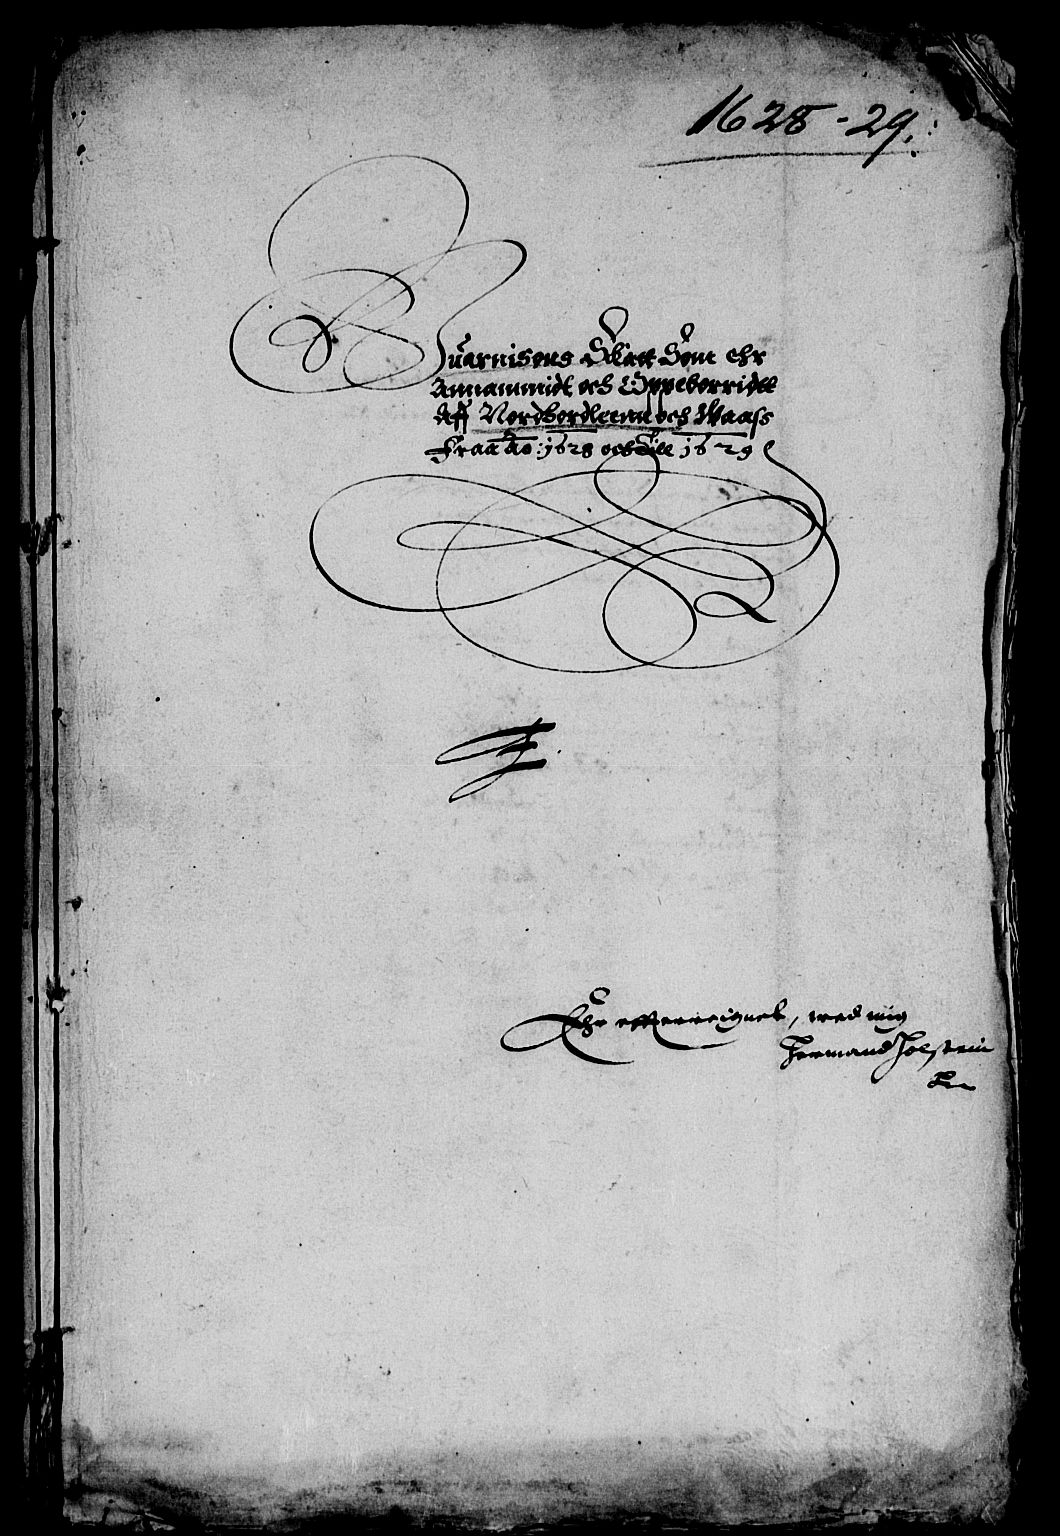 1628-29.
Guarnisons Skatt Som ehr
Annammidt och Oppeborridtt
Aff Nordhordleenn och Waass
Fraa Ao: 1628 och Till 1629
Ehr effterreignet, med mig
Hermand Holstein